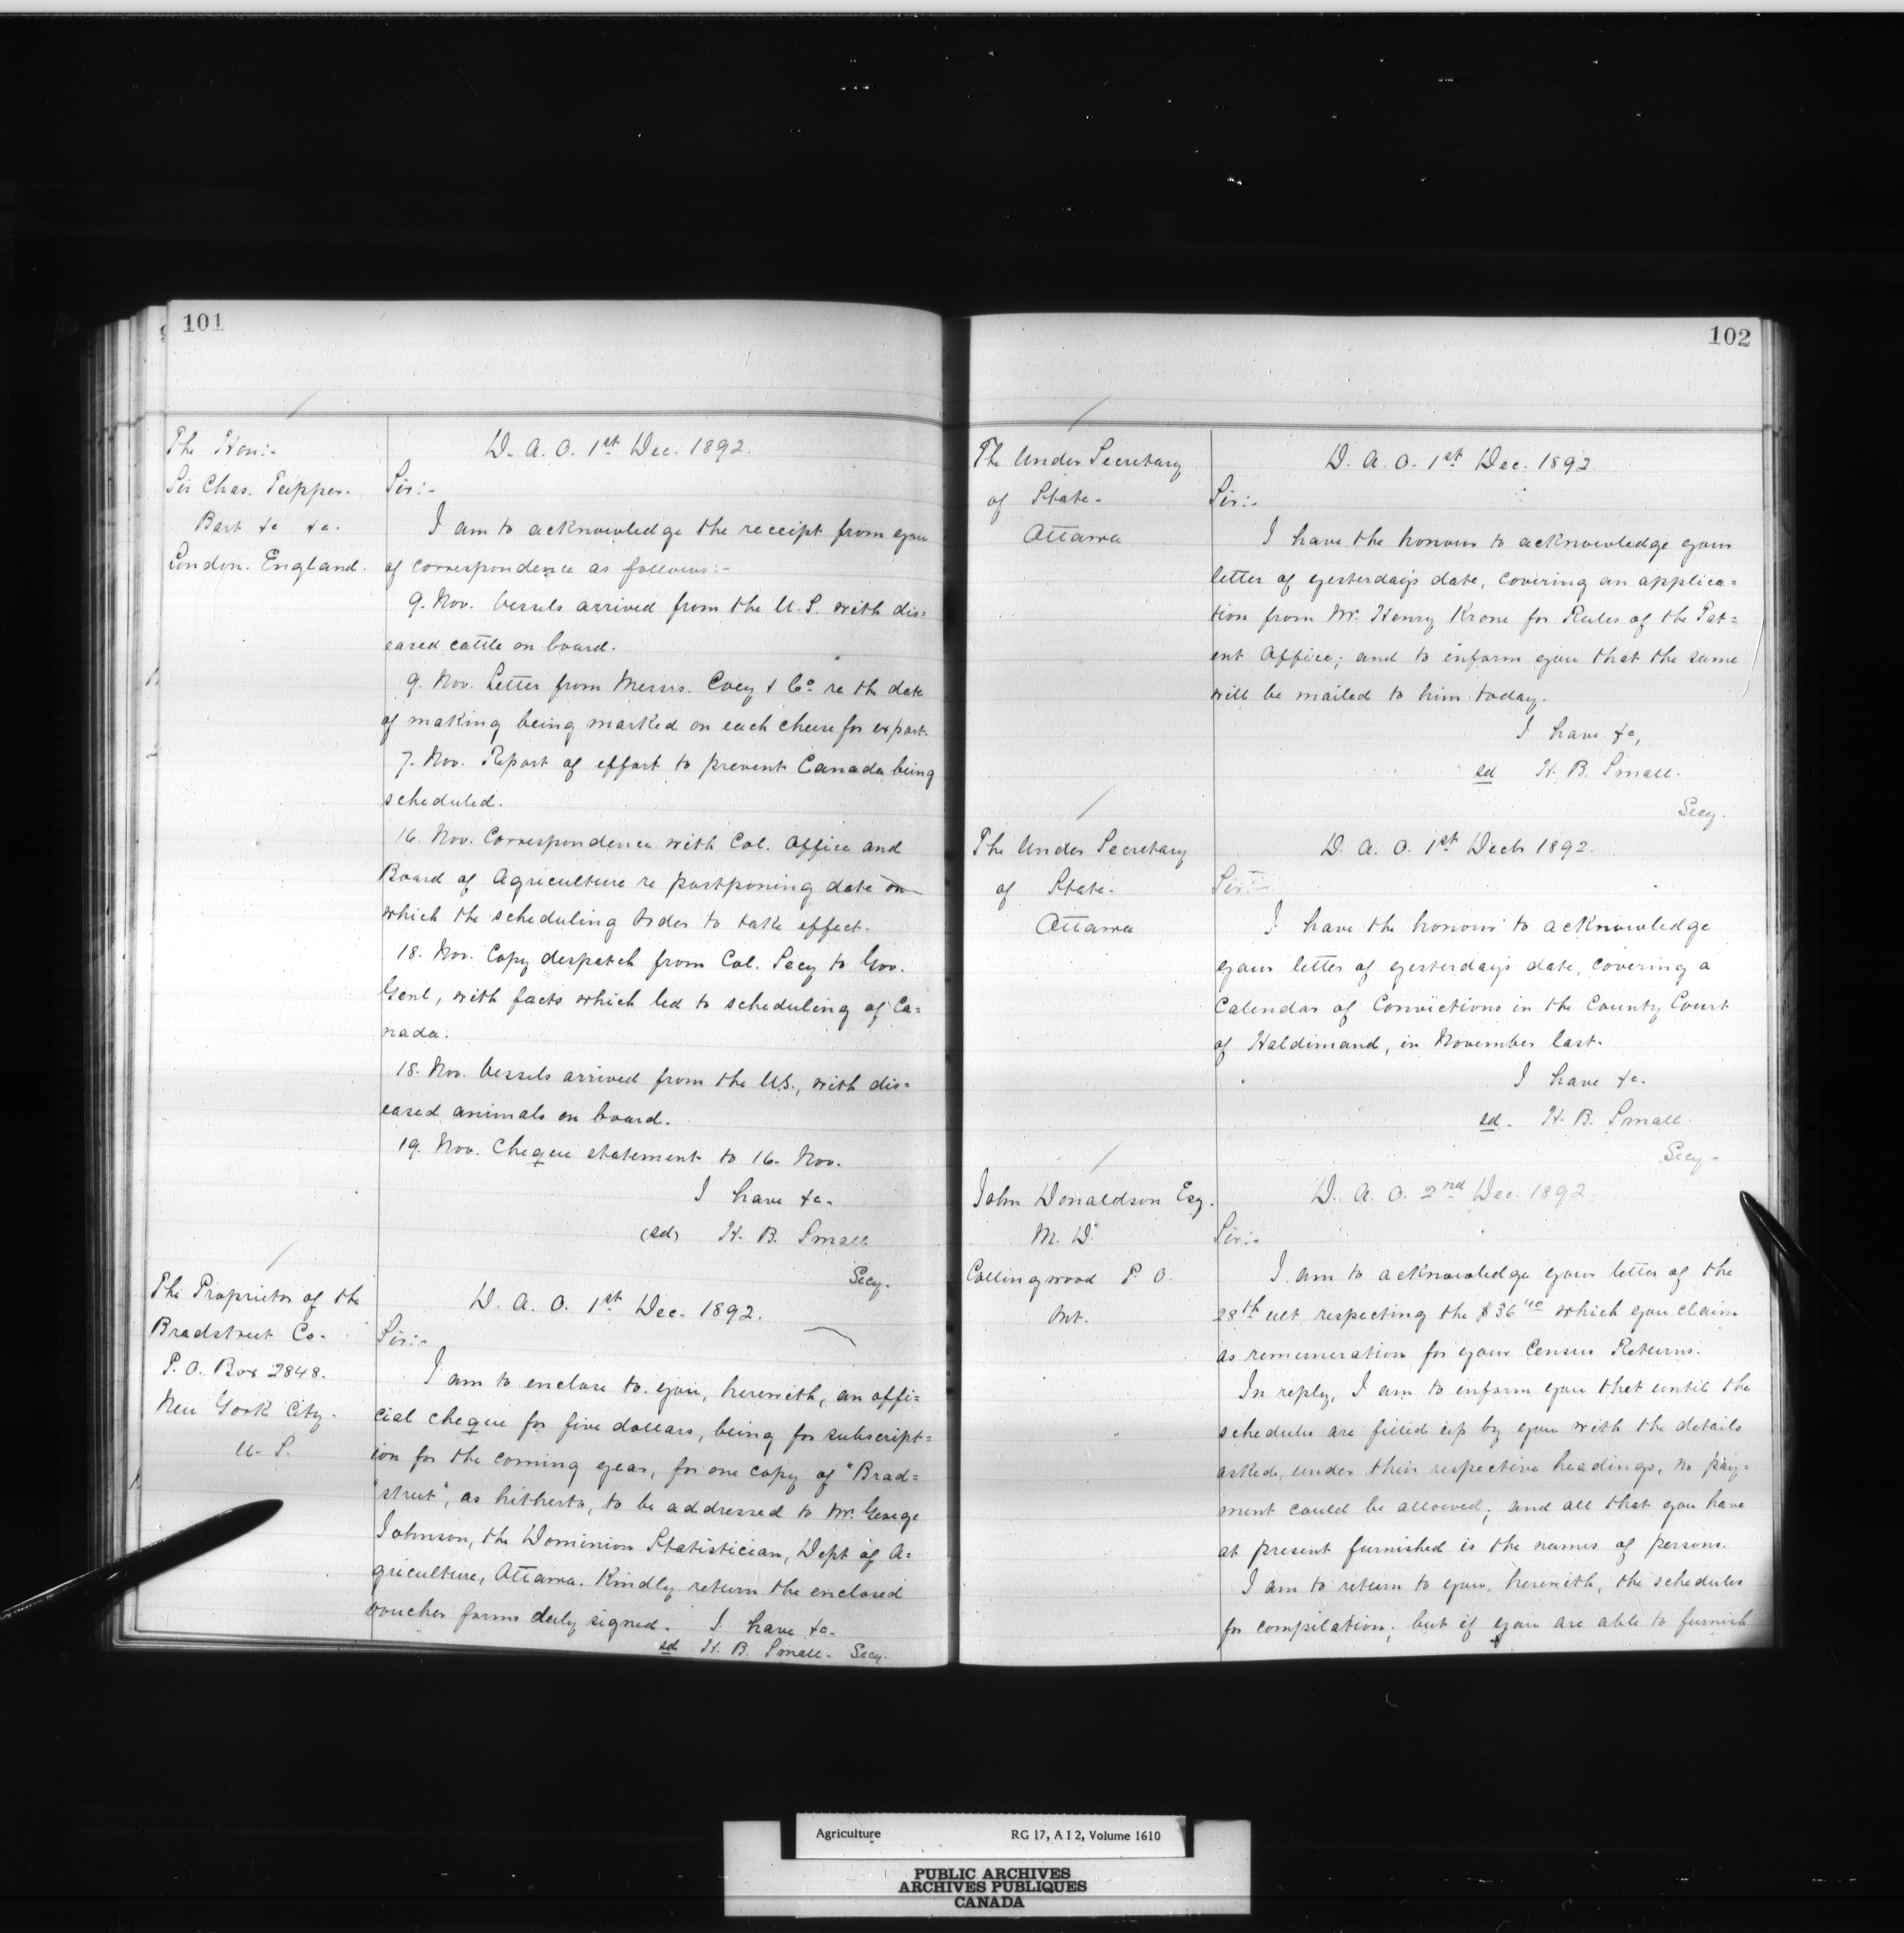 101
The Hon:-
Sir Chas. Tupper.
Bart &c &c.
London. England.
D. A. O. 1st Dec. 1892.
Sir:-
I am to acknowledge the receipt from you
of correspondence as follows:-
9. Nov. Vessels arrived from the U.S. with dis=
eased cattle on board.
9. Nov. Letter from Messrs. Coey & Co re the date
of making being marked on each cheese for export.
7. Nov. Report of effort to prevent Canada being
scheduled.
16. Nov. Correspondence with Col. Office and
Board of Agriculture re postponing date on
which the scheduling Order to take effect.
18. Nov. Copy despatch from Col. Secy to Gov.
Genl, with facts which led to scheduling of Ca=
nada.
18. Nov. Vessels arrived from the U.S., with dis=
eased animals on board.
19. Nov. Cheque statement to 16. Nov.
I have &c.
(sd) H. B. Small
Secy.
The Proprietor of the
Bradstreet Co.
P. O. Box 2848.
New York City.
U. S.
D. A. O. 1st Dec. 1892.
Sir:-
I am to enclose to you, herewith, an offi=
cial cheque for five dollars, being for subscript=
ion for the coming year, for one copy of "Brad=
"street", as hitherto, to be addressed to Mr. George
Johnson, the Dominion Statistician, Dept of A=
griculture, Ottawa. Kindly return the enclosed
voucher forms duly signed. I have &c.
sd H. B. Small. Secy.
102
The Under Secretary
of State.
Ottawa
D. A. O. 1st Dec. 1892.
Sir:-
I have the honour to acknowledge your
letter of yesterday's date, covering an applica=
tion from Mr. Henry Krone for Rules of the Pat=
ent Office; and to inform you that the same
will be mailed to him today.
I have &c,
sd H. B. Small.
Secy.
The Under Secretary
of State.
Ottawa
D. A. O. 1st Decr 1892.
Sir:-
I have the honour to acknowledge
your letter of yesterday's date, covering a
Calendar of Convictions in the County Court
of Haldimand, in November last.
I have &c.
sd. H. B. Small.
Secy.
John Donaldson Esq.
M. D.
Collingwood P. O.
Ont.
D. A. O. 2nd Dec. 1892.
Sir:-
I am to acknowledge your letter of the
28th ult, respecting the $36 40 which you claim
as remuneration for your Census Returns.
In reply, I am to inform you that until the
schedules are filled up by you with the details
asked, under their respective headings, no pay=
ment could be allowed; and all that you have
at present furnished is the names of persons.
I am to return to you, herewith, the schedules
for compilation; but if you are able to furnish
Agriculture RG 17, A I 2, Volume 1610
PUBLIC ARCHIVES
ARCHIVES PUBLIQUES
CANADA